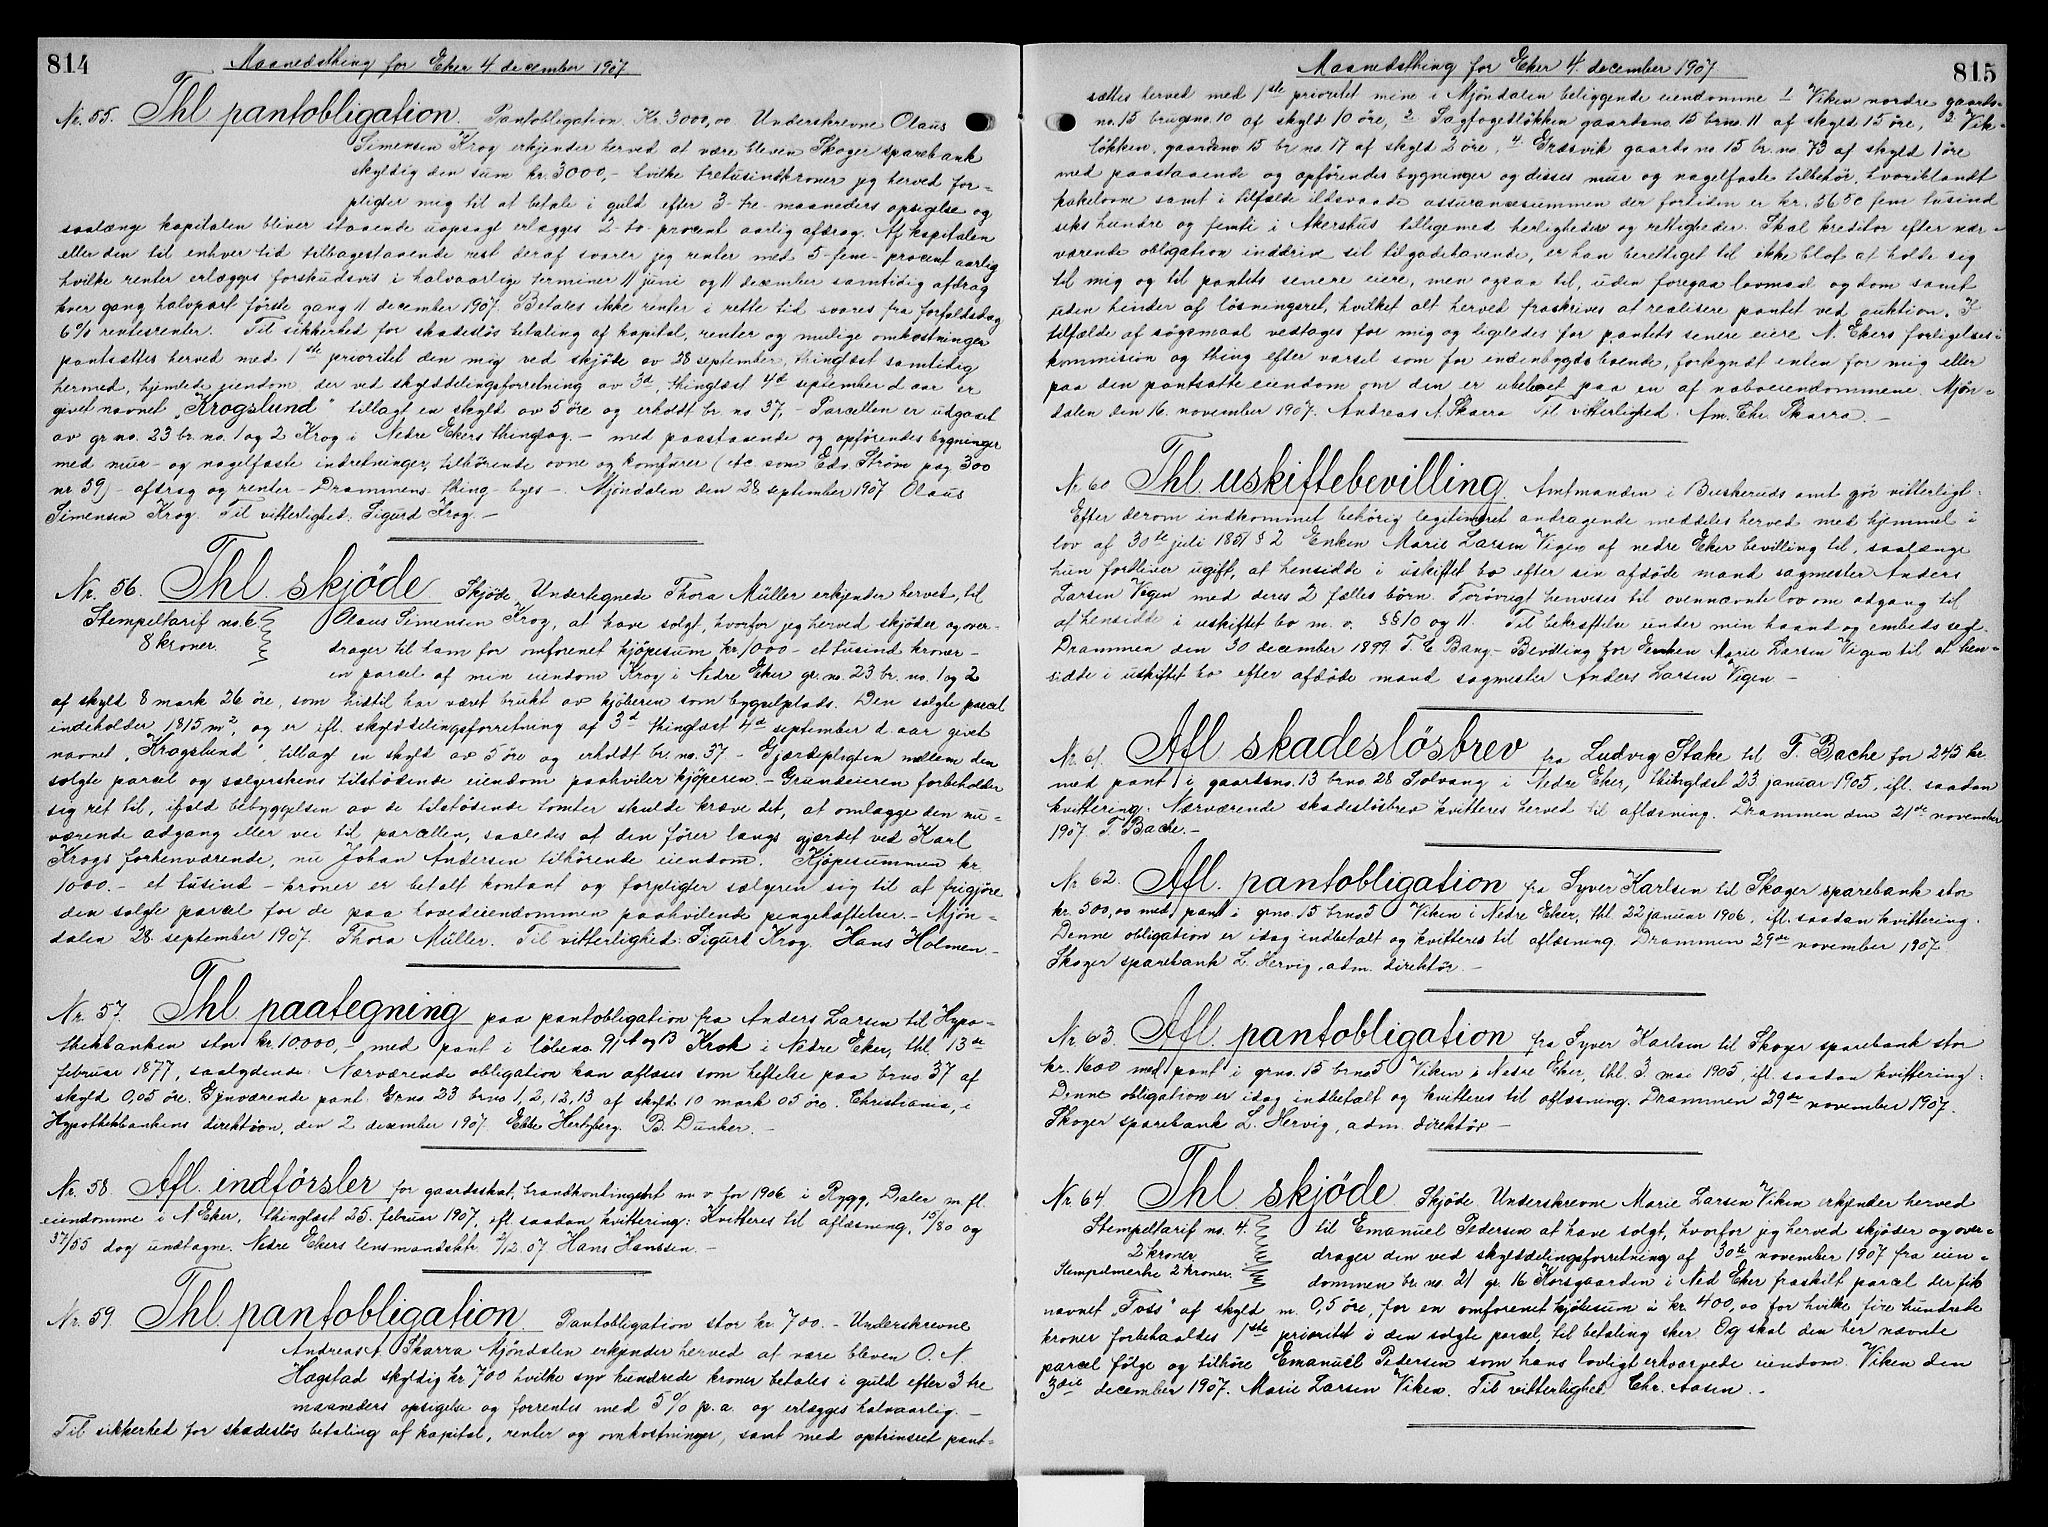 814
Maanedsthing for Eker 4 december 1907
Nr. 55. Thl pantobligation. Pantobligation Kr. 3000,00 Underskrevne Olaus
Simensen Krog erkjender herved at være bleven Skoger sparebank
skyldig den sum kr. 3000,- hvilke tretusindkroner jeg herved for-
pligter mig til at betale i guld efter 3-tre-maaneders opsigelse og
saalænge kapitalen bliver staaende uopsagt erlægges 2-to-procent aarlig afdrag. Af kapitalen
eller den til enhver tid tilbagestaaende rest deraf svarer jeg renter med 5-fem-procent aarlig
hvilke renter erlægges forskudsvis i halvaarlige terminer 11 juni og 11 december samtidig afdrag
hver gang halvpart første gang 11 december 1907. Betales ikke renter i rette tid svares fra forfaldsdag
6% rentesrenter. Til sikkerhed for skadesløs betaling af kapital, renter og mulige omkostninger
pantsættes herved med 1ste prioritet den mig ved skjøte av 28 september, thinglæst samtidig
hermed, hjemlede eiendom der ved skylddelingsforretning av 3d, thinglæst 4d september d. aar er
givet navnet „Krogslund" tillagt en skyld av 5 øre og erholdt br. no. 37,- Parcellen er udgaaet
av gr. no. 23 br. no. 1 og 2 Krog i Nedre Ekers thinglag.- med paastaaende og opførendes bygninger
med mur- og nagelfaste indretninger, tilhørende ovne og komfurer (etc. som Edv. Strøm pag 300
nr 59) - afdrag og renter - Drammens thing - byes -. Mjøndalen den 28 september 1907 Olaus
Simensen Krog. Til vitterlighed: Sigurd Krog. -
Nr. 56. Thl. skjøde Skjøde, Undertegnede Thora Müller erkjender herved, til
Stempeltarif no. 6 Olaus Simensen Krog, at have solgt, hvorfor jeg herved skjøder og over-
8 kroner. drager til ham for omforenet kjøpesum kr. 1000 - et tusind kroner -
en parcel af min eiendom Krog i Nedre Eker gr. no. 23 br. no. 1 og 2
af skyld 8 mark 26 øre, som hidtil har været brukt av kjøberen som bygselplads. Den solgte parcel
indeholder 1815 m2, og er ifl. skylddelingsforretning af 3d thinglæst 4d september d. aar givet
navnet „Krogslund", tillagt en skyld av 5 øre og erholdt br. no. 37 - Gjærdepligten mellem den
solgte parcel og sælgerskens tilstødende eiendom paahviler kjøperen - Grundeieren forbeholder
sig ret til, ifald bebyggelsen av de tilstøsende tomter skulde kræve det, at omlægge den nu-
værende adgang eller vei til parcellen, saaledes at den fører langs gjærdet ved Karl
Krogs forhenværende, nu Johan Andersen tilhørende eiendom. Kjøpesummen kr
1000.- et tusind - kroner er betalt kontant og forpligter sælgeren sig til at frigjøre
den solgte parcel for de paa hovedeiendommen paahvilende pengehæftelser.- Mjøn-
dalen 28. september 1907. Thora Müller. Til vitterlighed: Sigurd Krog. Hans Holmen.-
Nr. 57. Thl paategning paa pantobligation fra Anders Larsen til Hypo-
thekbanken stor kr. 10.000,- med pant i løbeno. 91 A og B Krok i Nedre Eker, thl. 13de
februar 1877, saalydende: Nærværende obligation kan aflæses som heftelse paa br.no 37 af
skyld 0,05 øre. Gjenværende pant: Grno 23 brno 1, 2, 12, 13 af skyld 10 mark 05 øre. Christiania, i
Hypothekbankens direktion, den 2 december 1907. Ebbe Hertzberg. B. Dunker. -
Nr. 58. Afl. indførsler for gaardsskat, brandkontingent m. v. for 1906 i Rygg, Daler m. fl.
eiendomme i N Eker, thinglæst 25. februar 1907, ifl. saadan kvittering: Kvitteres til aflæsning, 15/80 og
57/55 dog undtagne. Nedre Ekers lensmandsktr. 2/12 07 Hans Hanssen. -
Nr. 59. Thl pantobligation Pantobligation stor kr. 700.- Underskrevne
Andreas A. Skarra Mjøndalen erkjender herved at være bleven O. N.
Hagstad skyldig kr. 700 hvilke syv hundrede kroner betales i guld efter 3 tre
maaneders opsigelse og forrentes med 5% p. a. og erlægges halvaarlig. -
Til sikkerhed for skadesløs betaling af kapital, renter og omkostninger, samt med optrinsret pant-
815
Maanedsthing for Eker 4. december 1907
sættes herved med 1ste prioritet mine i Mjøndalen beliggende eiendomme 1 Viken nordre gaards-
no. 15 brugsno. 10 af skyld 10 øre, 2 Sagfogedløkken gaardsno. 15 brno. 11 af skyld 15 øre, 3. Vik-
løkken, gaardsno 15 br. no. 17 af skyld 2 øre, 4. Græsvik gaards no 15 br. no. 73 af skyld 1 øre
med paastaaende og opførendes bygninger og disses mur og nagelfaste tilbehør, hvoriblandt
kakelovne samt i tilfælde ildsvaade assurancesummen der fortiden er kr. 5650 fem tusind
seks hundre og femti i Akershus tilligemed herligheder og rettigheder. Skal kreditor efter nær-
værende obligation inddrive sit tilgodehavende, er han berettiget til ikke blot at holde sig
til mig og til pantets senere eiere, men ogsaa til, uden foregaa lovmaal og dom samt
uden hinder af løsningsret, hvilket alt herved fraskrives at realisere pantet ved auktion. I
tilfælde af søgsmaal vedtages for mig og ligeledes for pantets senere eiere N. Ekers forligelses-
kommision og thing efter varsel som for indenbygdsboende, forkyndt enten for mig eller
paa den pantsatte eiendom om den er ubeboet paa en af naboeiendommene. Mjøn-
dalen den 16. november 1907. Andreas A. Skarra Til vitterlighed: Am. Chr. Skarra. -
Nr 60 Thl uskiftebevilling. Amtmanden i Buskeruds amt gjør vitterligt:
Efter derom indkommet behørig legitimeret andragende meddeles herved med hjemmel i
lov af 30te juli 1851 § 2 Enken Marie Larsen Vigen af nedre Eker bevilling til, saalænge
hun forbliver ugift, at hensidde i uskiftet bo efter sin afdøde mand sagmester Anders
Larsen Vigen med deres 2 fælles børn. Forøvrigt henvises til ovennævnte lov om adgang til
at hensidde i uskiftet bo m. v. §§ 10 og 11. Til bekræftelse under min haand og embeds segl.
Drammen den 30 december 1899. T. C Bang - Bevilling for Enken Marie Larsen Vigen til at hen-
sidde i uskiftet bo efter afdøde mand sagmester Anders Larsen Vigen -
Nr. 61. Afl skadesløsbrev fra Ludvig Stake til F. Bache for 245 kr.
med pant i gaardsno. 13 brno 28 Solvang i Nedre Eker, thinglæst 23 januar 1905, ifl. saadan
kvittering: Nærværende skadesløsbrev kvitteres herved til aflæsning. Drammen den 21de november
1907 F. Bache. -
Nr 62. Afl. pantobligation fra Syver Karlsen til Skoger sparebank stor
kr. 500,00 med pant i grno. 15 brno 5 Viken i Nedre Eker, thl. 22 januar 1906, ifl. saadan kvittering:
Denne obligation er idag indbetalt og kvitteres til aflæsning. Drammen 29de november 1907
Skoger sparebank L. Hervig, adm. direktør. -
Nr 63. Afl. pantobligation fra Syver Karlsen til Skoger sparebank stor
kr. 1600 med pant i grno. 15 brno 5 Viken i Nedre Eker, thl. 3 mai 1905, ifl. saadan kvittering:
Denne obligation er idag indbetalt og kvitteres til aflæsning. Drammen 29de november 1907.
Skoger sparebank L. Hervig, adm. direktør -
Nr 64. Thl skjøde. Skjøde Underskrevne Marie Larsen Viken erkjender herved
Stempeltarif no. 4. til Emanuel Pedersen at have solgt, hvorfor jeg herved skjøder og over-
2 kroner drager den ved skylddelingsforretning af 30te november 1907 fra eien-
Stempelmerke 2 kroner. dommen br. no. 21 gr. 16 Korsgaarden i Ned Eker fraskilt parcel der fik
navnet „Foss" af skyld m. 0,5 øre, for en omforenet kjøbesum a kr. 400,00 for hvilke fire hundrede
kroner forbeholdes 1ste prioritet i den solgte parcel, til betaling sker. Og skal den her nævnte
parcel følge og tilhøre Emanuel Pedersen som hans lovligt erhvervede eiendom. Viken den
3die december 1907. Marie Larsen Viken. Til vitterlighet. Chr. Aasen. -